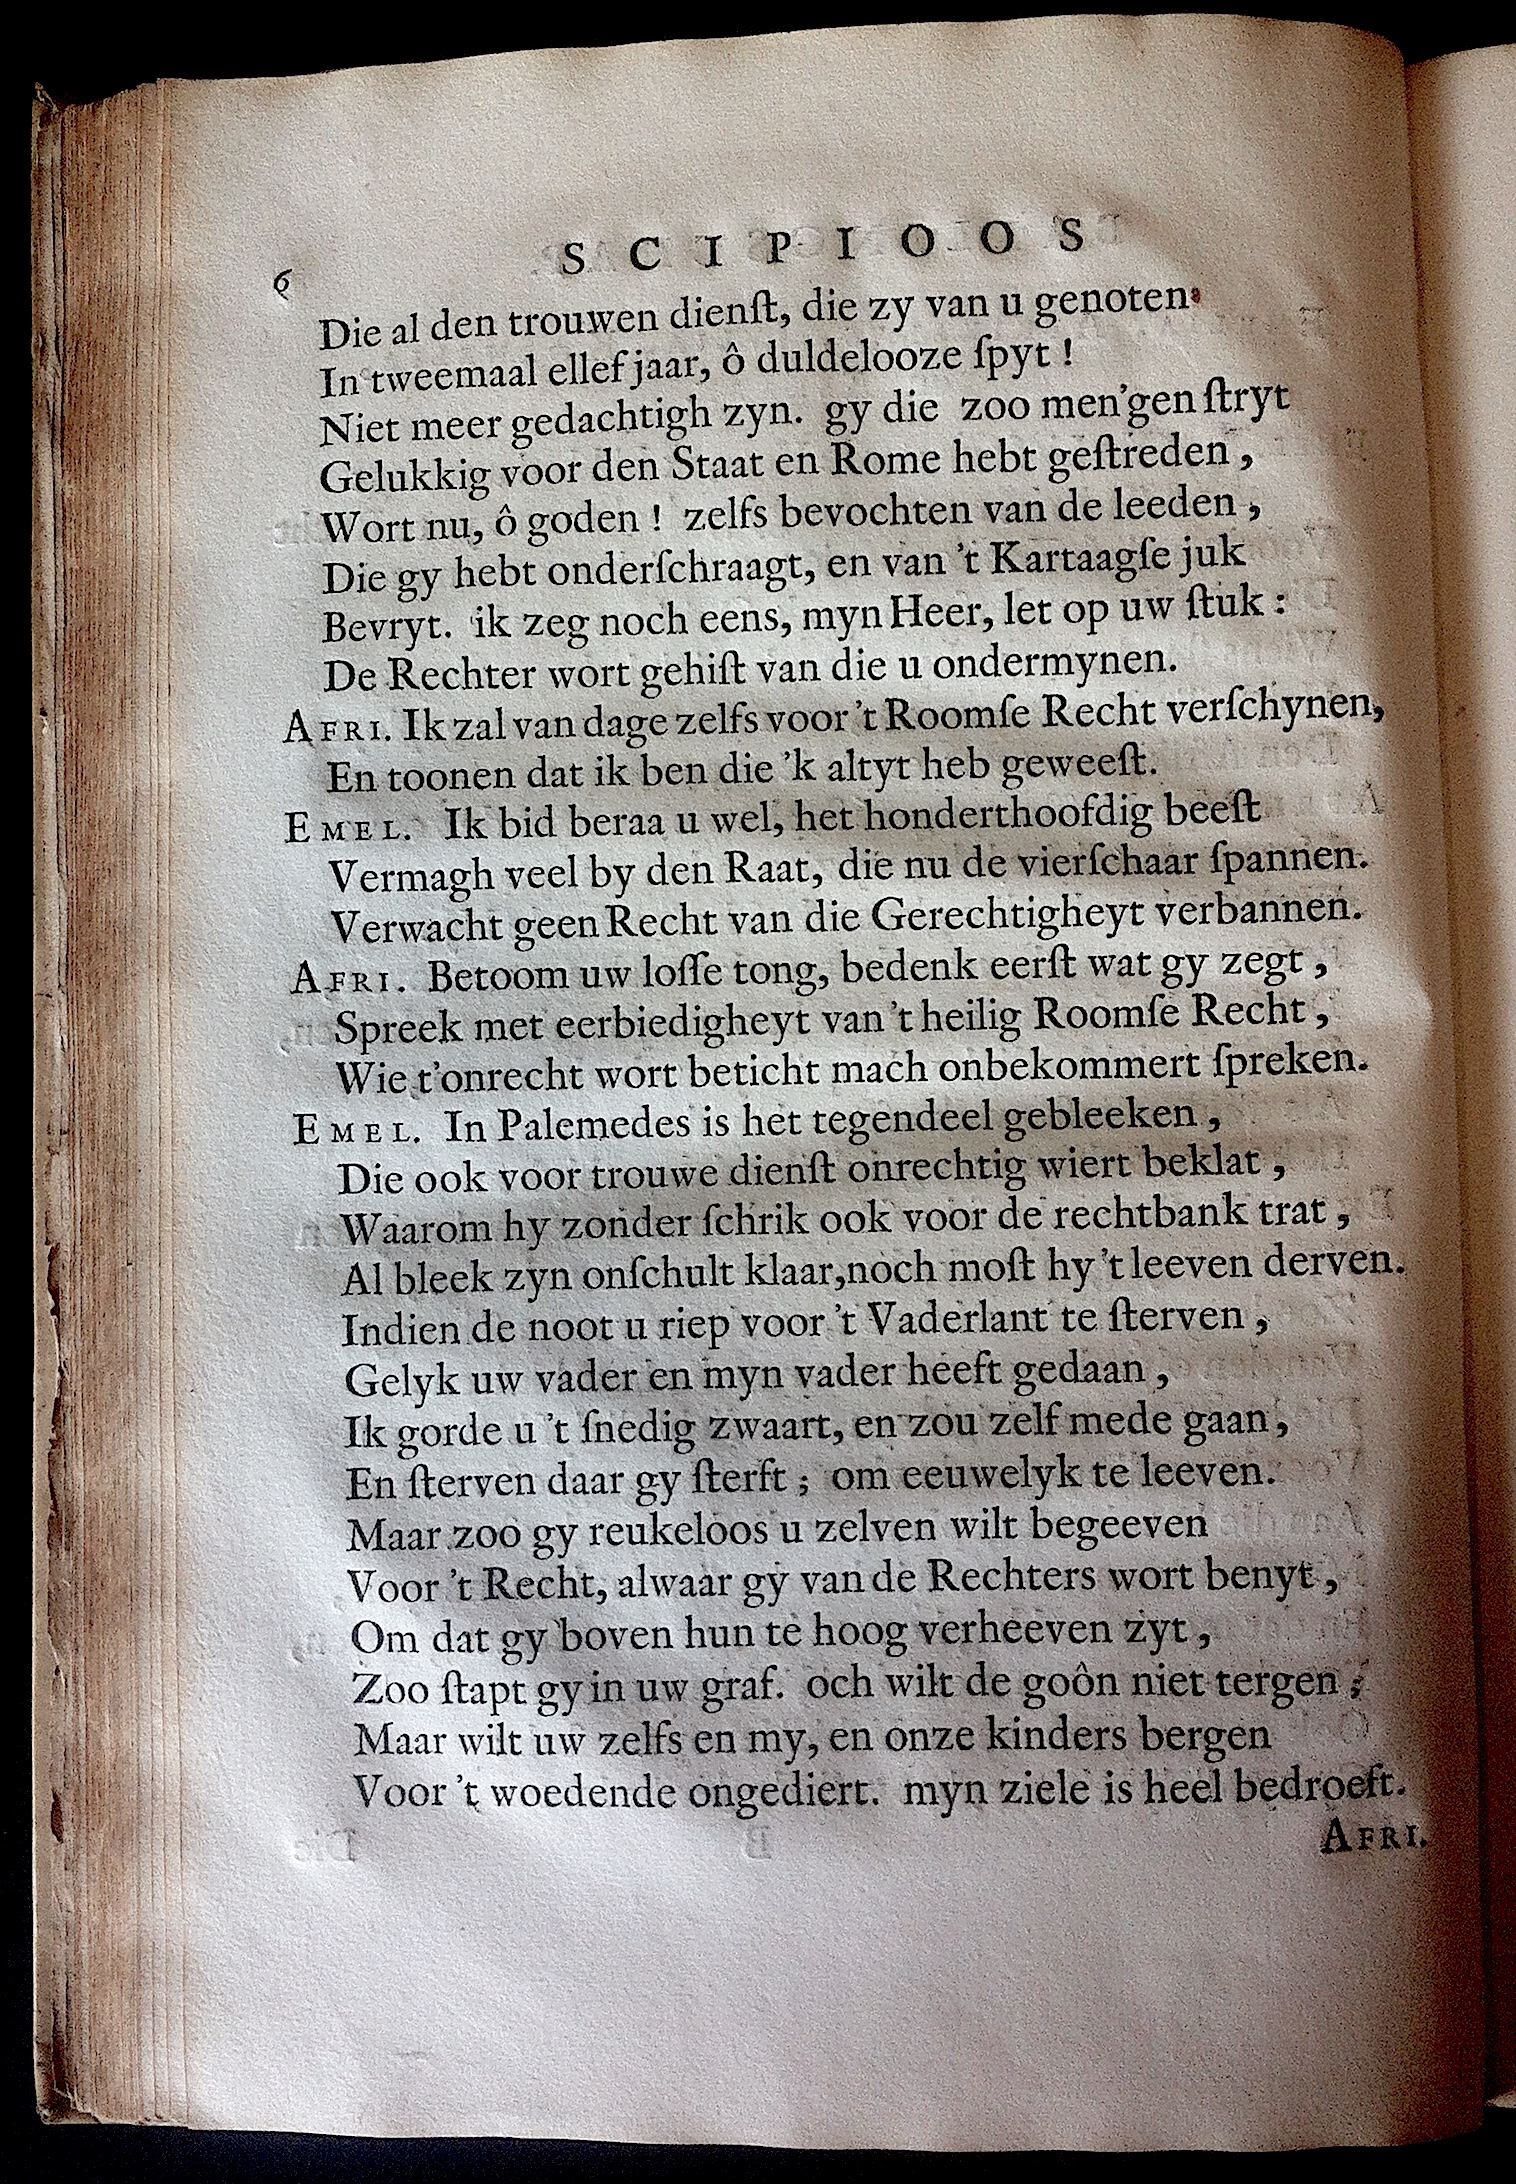 6
SCIPIOOS
Die al den trouwen dienſt, die zy van u genoten
In tweemaal ellef jaar, ô duldelooze ſpyt !
Niet meer gedachtigh zyn. gy die zoo men'gen ſtryt
Gelukkig voor den Staat en Rome hebt geſtreden ,
Wort nu, ô goden ! zelfs bevochten van de leeden ,
Die gy hebt onderſchraagt, en van 't Kartaagſe juk
Bevryt. ik zeg noch eens, myn Heer, let op uw ſtuk :
De Rechter wort gehiſt van die u ondermynen.
AFRI. Ik zal van dage zelfs voor 't Roomſe Recht verſchynen,
En toonen dat ik ben die 'k altyt heb geweeſt.
EMEL. Ik bid beraa u wel, het honderthoofdig beeſt
Vermagh veel by den Raat, die nu de vierſchaar ſpannen.
Verwacht geen Recht van die Gerechtigheyt verbannen.
AFRI. Betoom uw loſſe tong, bedenk eerſt wat gy zegt ,
Spreek met eerbiedigheyt van 't heilig Roomſe Recht ,
Wie t'onrecht wort beticht mach onbekommert ſpreken.
EMEL. In Palemedes is het tegendeel gebleeken ,
Die ook voor trouwe dienſt onrechtig wiert beklat ,
Waarom hy zonder ſchrik ook voor de rechtbank trat ,
Al bleek zyn onſchult klaar,noch moſt hy 't leeven derven.
Indien de noot u riep voor 't Vaderlant te ſterven ,
Gelyk uw vader en myn vader heeft gedaan ,
Ik gorde u 't ſnedig zwaart, en zou zelf mede gaan ,
En ſterven daar gy ſterft ; om eeuwelyk te leeven.
Maar zoo gy reukeloos u zelven wilt begeeven
Voor 't Recht, alwaar gy van de Rechters wort benyt ,
Om dat gy boven hun te hoog verheeven zyt ,
Zoo ſtapt gy in uw graf. och wilt de goôn niet tergen ;
Maar wilt uw zelfs en my, en onze kinders bergen
Voor 't woedende ongediert. myn ziele is heel bedroeft.
AFRI.